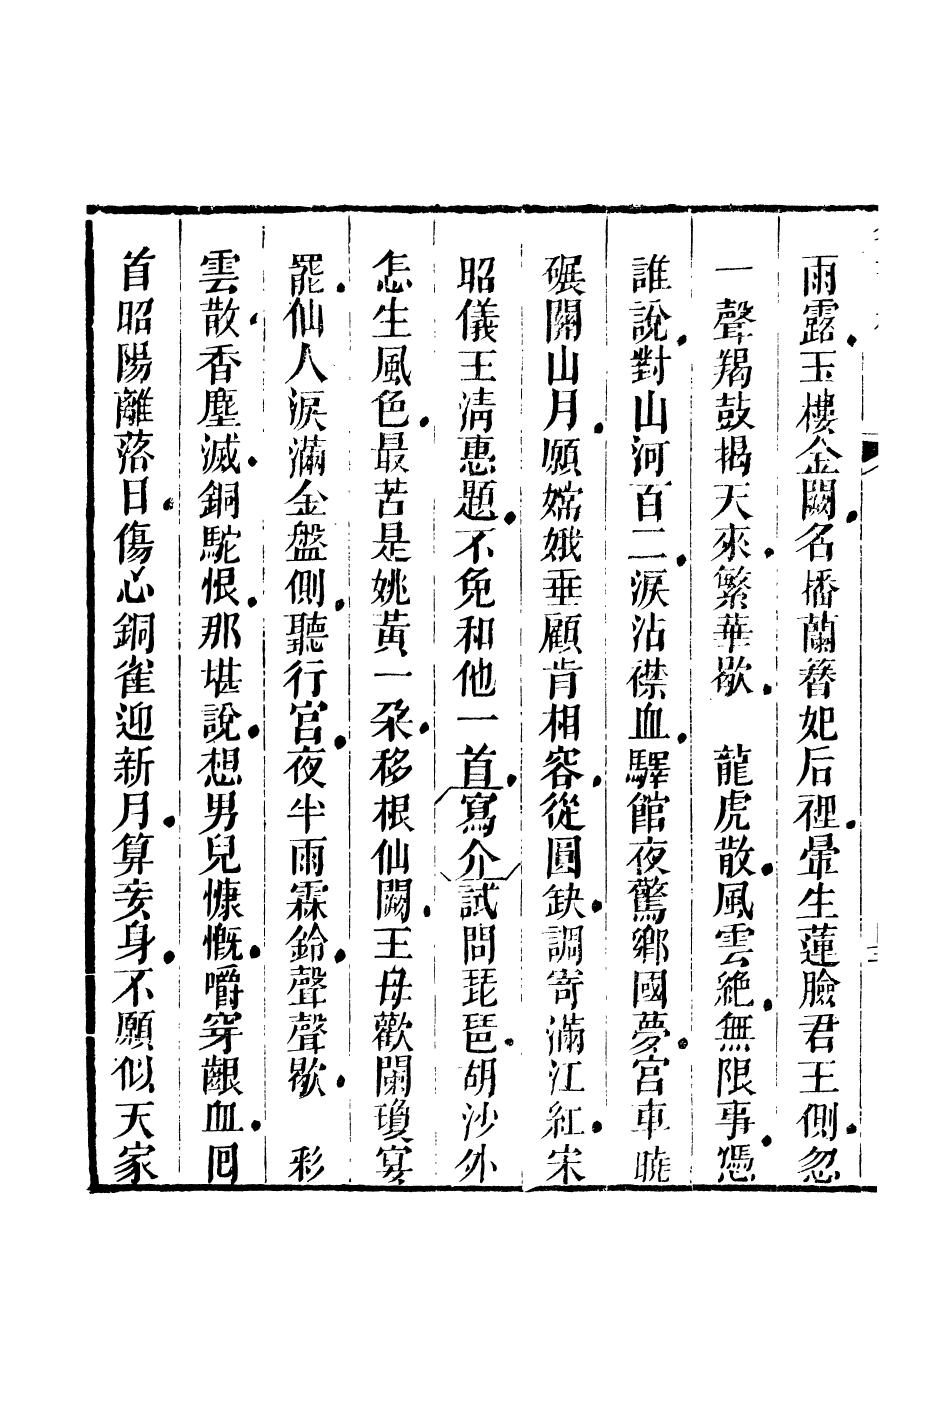 雨露玉樓金闕名播蘭簪妃后裡暈生蓮臉君王側忽
一聲羯鼓揭天來繁華歇　龍虎散風雲絕無限事憑
誰說對山河百二淚沾襟血驛館夜驚鄉國夢宮車曉
碾關山月願嫦娥垂顧肯相容從圓缺調寄滿江紅宋
昭儀王清惠題不免和他一首寫介試問琵琶胡沙外
怎生風色最苦是姚黃一朶移根仙闕王母歡闌瓊宴
罷仙人淚滿金盤側聽行宮夜半雨霖鈴聲聲歇　彩
雲散香塵滅銅駝恨那堪說想男兒慷慨嚼穿齦血囘
首昭陽離落日傷心銅雀迎新月算妾身不願似天家